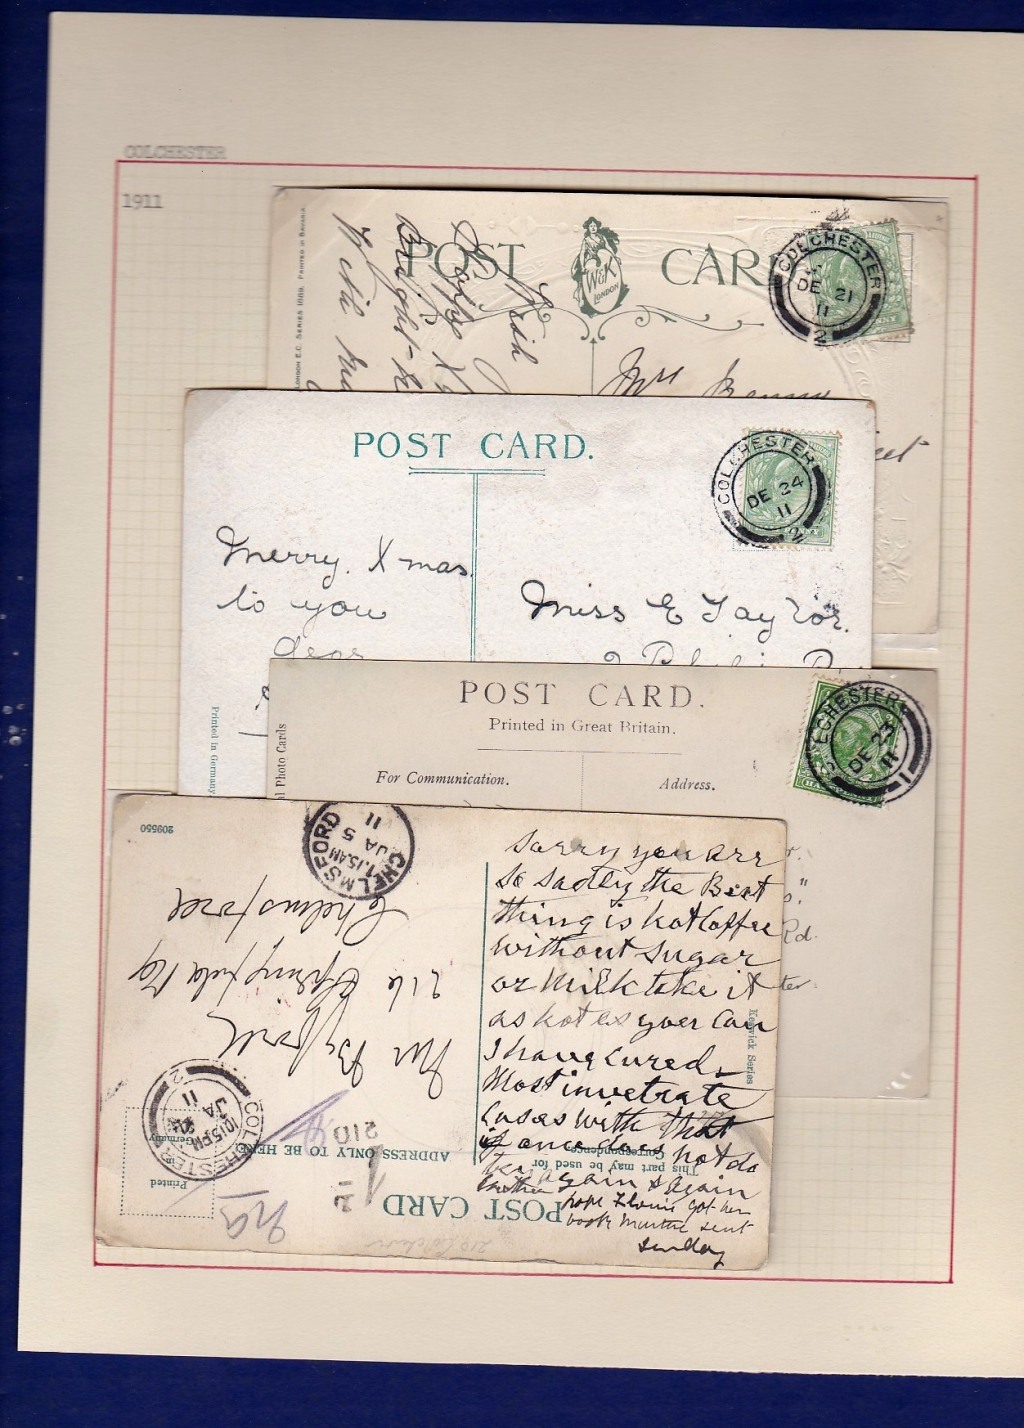 COLCHESTER
1911
LONDON E.C. SERIES 1089. PRINTED IN BAVARIA
POST CARD
W&K
LONDON
With
Bright
Happy X
Wish
Mrs
COLCHESTER
DE 21
11
2
POST CARD.
COLCHESTER
DE 24
11
2
Merry. Xmas.
to you
dear
Miss E Taylor.
Printed in Germany
POST CARD.
Printed in Great Britain.
For Communication.
Address.
l Photo Cards
COLCHESTER
DE 23
11
1
Rd.
ter
Keswick Series
209550
CHELMSFORD
1.15AM
JA 5
11
Sorry you are
so sadly the Best
thing is hot Coffee
without sugar
or Milk take it
as hot as yoer Can
I have cured
Most invetrate
Cases with that
if once does not do
try again & again
hope Flourie got her
book Martha sent
Sunday
216 Springfield Rd
Chelmsford
COLCHESTER
10.15PM
JA
11
2
Printed
in
Germany
ADDRESS ONLY TO BE HERE
This part may be used for
Correspondence
POST CARD
210
1
2